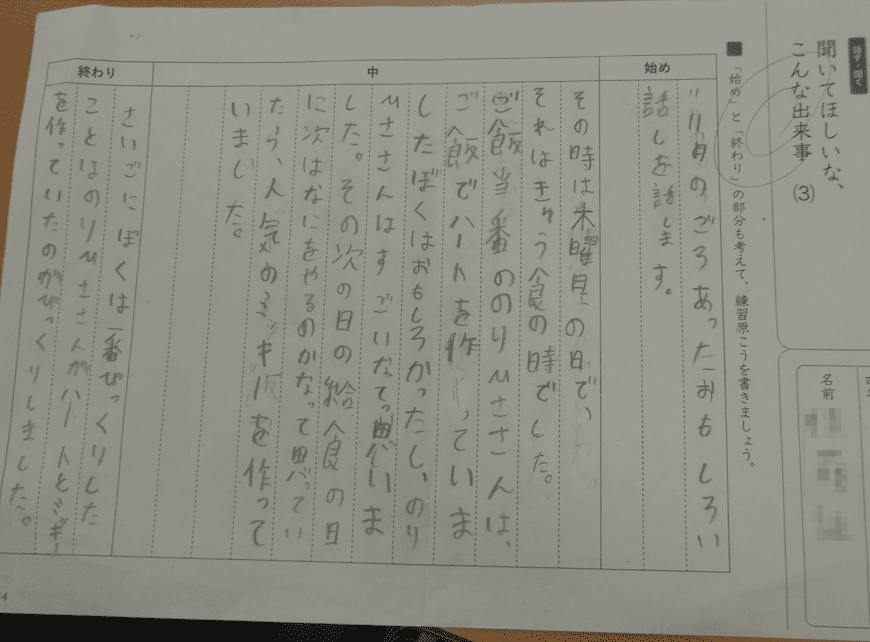 話す・聞く
聞いてほしいな、
こんな出来事 (3)
名前
■「始め」と「終わり」の部分も考えて、練習原こうを書きましょう。
始め
11月のごろあったおもしろい
話しを話します。
中
その時は木曜日の日で、
それはきゅう食の時でした。
ご飯当番ののりひささんは、
ご飯でハートを作っていま
したぼくはおもしろかったし、のり
ひささんはすごいなてっ思いま
した。その次の日の給食の日
に次はなにをやるのかなって思ってい
たら、人気のミッキーを作って
いました。
終わり
さいごにぼくは一番びっくりした
ことはのりひささんがハートとミッキー
を作っていたのがびっくりしました。
4